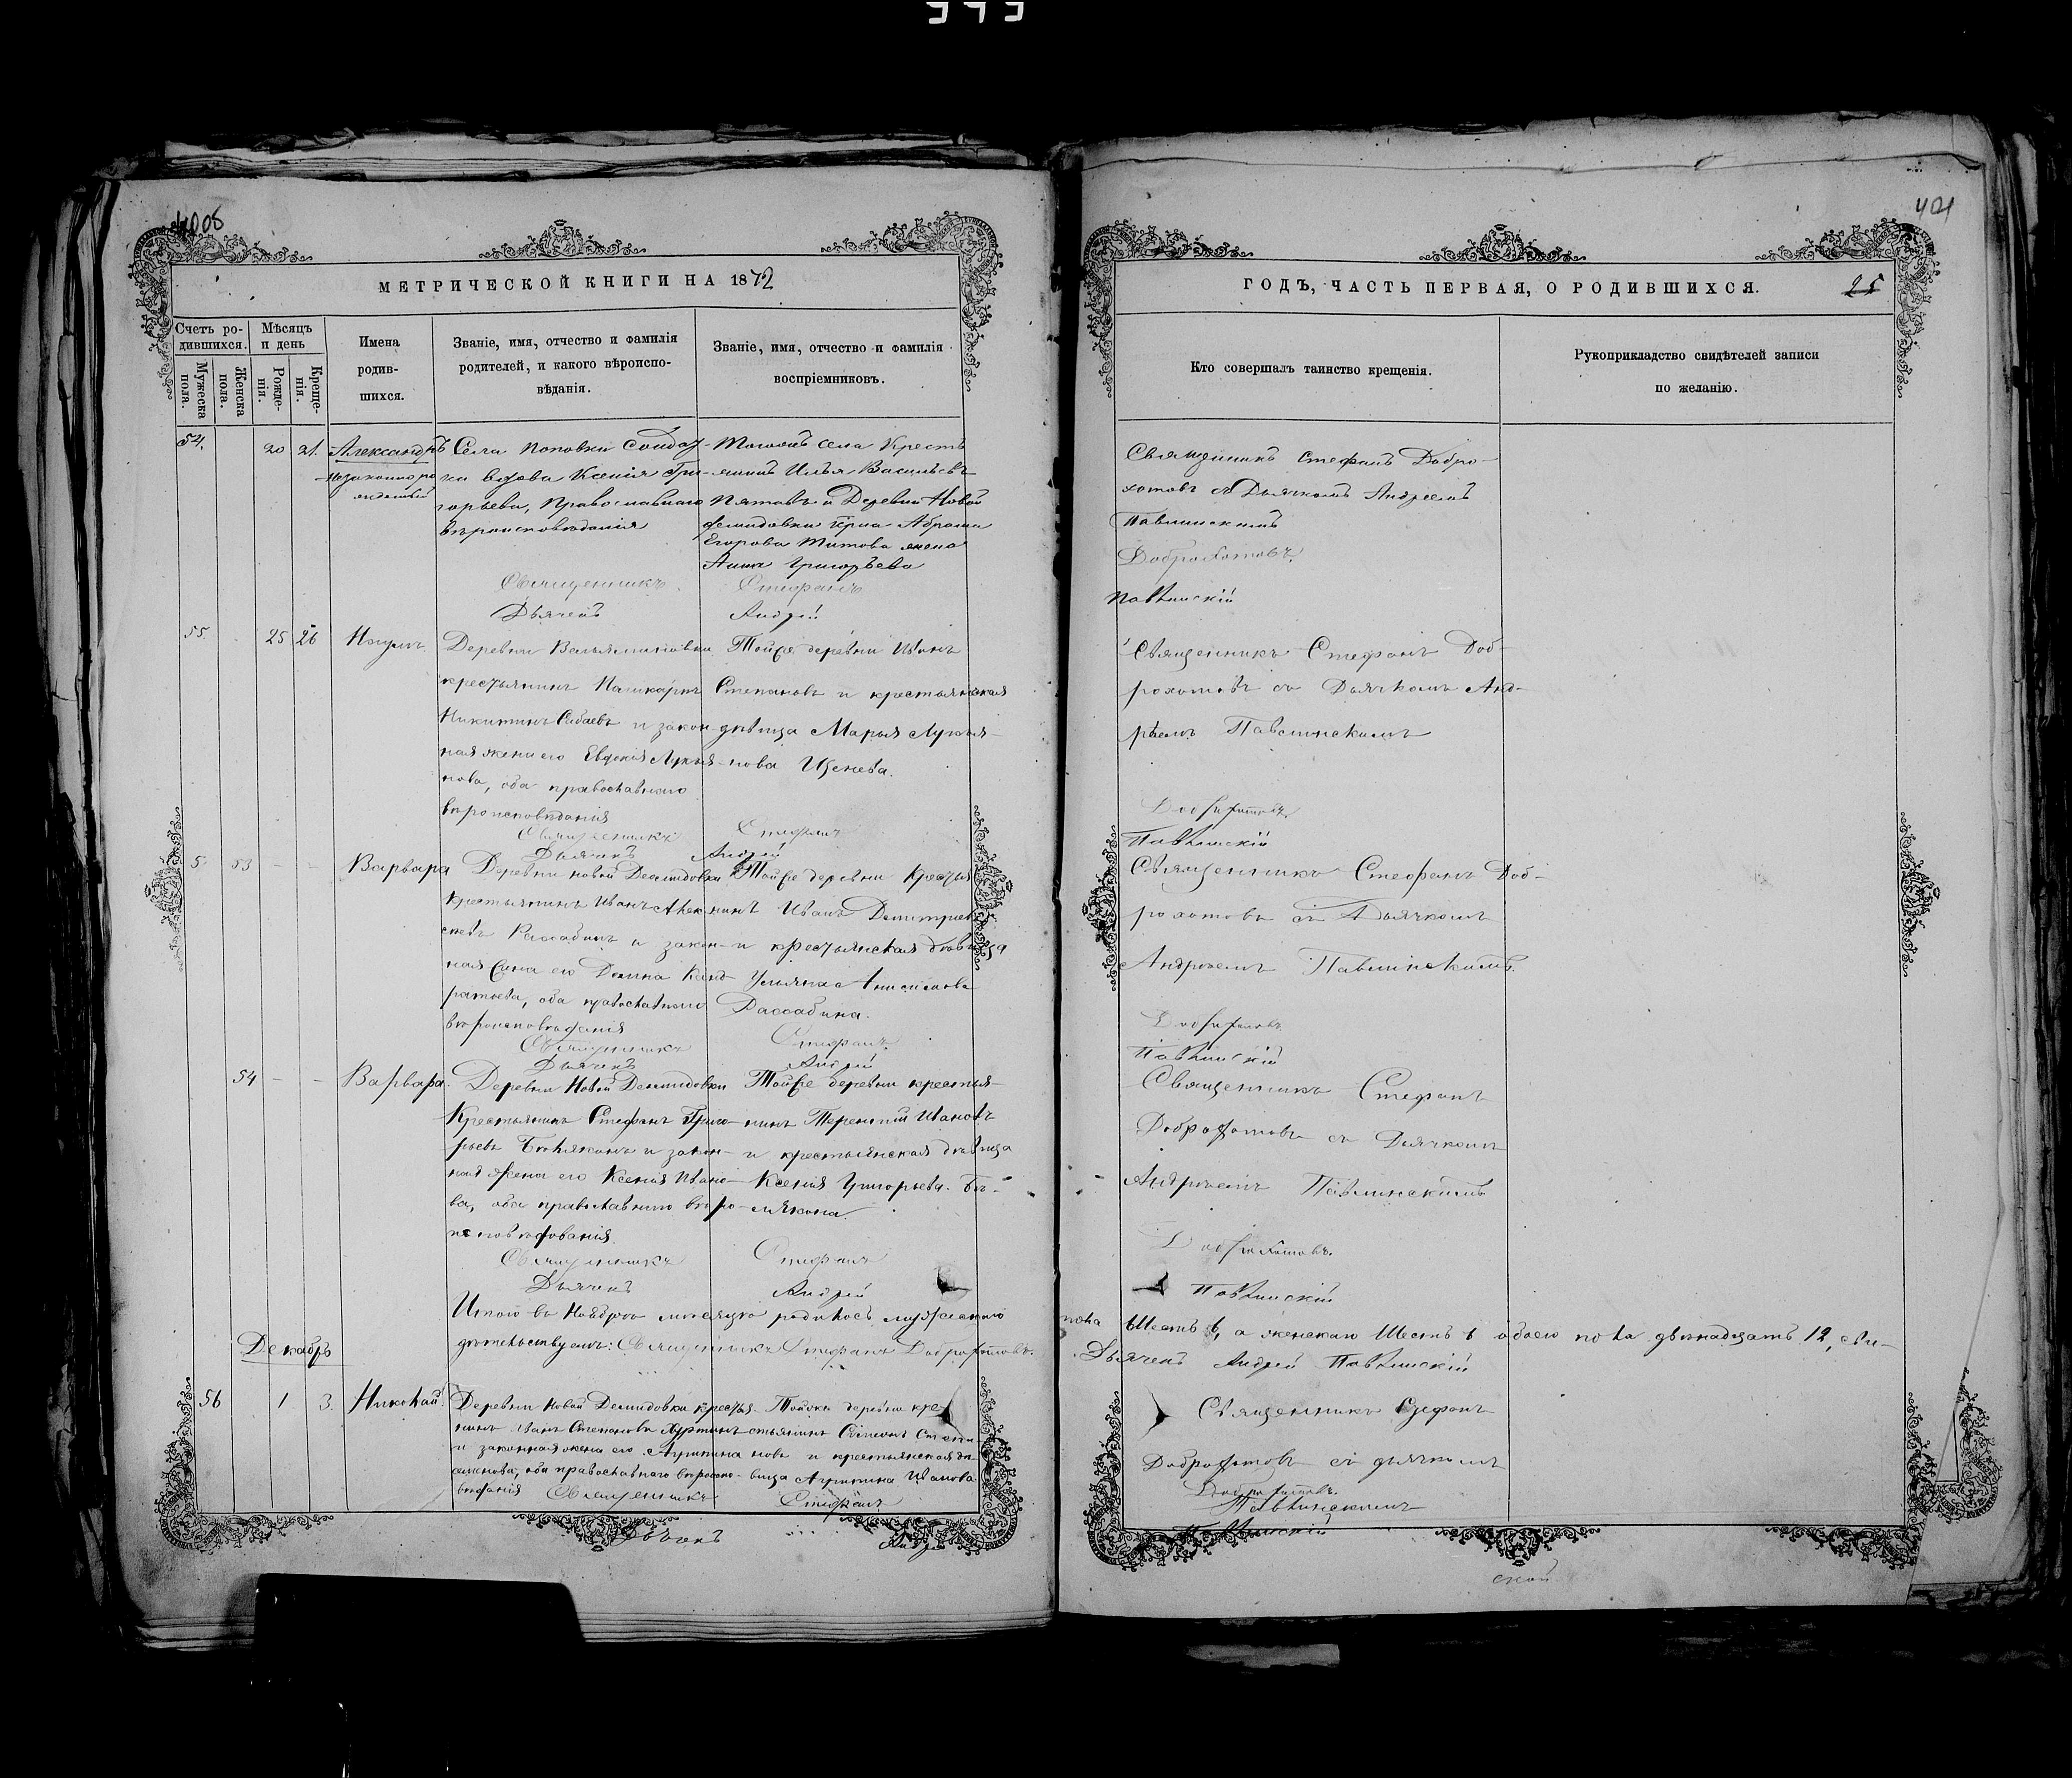 4008
МЕТРИЧЕСКОЙ КНИГИ НА 1872
Счетъ ро-
дившихся.
Мѣсяцъ
и день
Мужеска
пола.
Женска
пола.
Рожде-
нія.
Креще-
нія.
Имена
родив-
шихся.
Званіе, имя, отчество и фамилія
родителей, и какого вѣроиспо-
вѣданія.
Званіе, имя, отчество и фамилія
воспріемниковъ.
54. 20 21. Александръ
незаконноро
жденный
Села Поповки Солдат-
ка вдова Ксенія Гри-
горьева, Православнаго
вѣроисповѣданія
Тогожъ села Кресть
янинъ Илья Васильевъ
Пятовъ и Деревни Новой
Демидовки
Егорова Титова жена
Анна Григорьева
Священникъ Стефанъ
Дьячекъ Андрей
55. 25 26 Наумъ
Деревни
крестьянинъ
Никитинъ и закон-
ная жена его Евдокія Лукья-
нова, оба православнаго
вѣроисповѣданія
Тойже деревни Иванъ
Степановъ и крестьянская
дѣвица Марья Лукья-
нова
Священникъ Стефанъ
Дьячекъ Андрей
53 - - Варвара
Деревни Новой Демидовки
крестьянинъ Иванъ Алек-
сѣевъ и закон-
ная жена его Домна Конд-
ратьева, оба православнаго
вѣроисповѣданія
Тойже деревни Кресть
янинъ Иванъ Димитріев
и крестьянская дѣвица
Ульяна Анисимова
Рассабина.
Священникъ Стефанъ
Дьячекъ Андрей
54 - - Варвара.
Деревни Новой Демидовки
Крестьянинъ Стефанъ Григо-
рьевъ Бѣлякинъ и закон-
ная жена его Ксенія Ивано-
ва, оба православнаго вѣро-
исповѣдованія
Тойже деревни крестья-
нинъ Терентій Ивановъ
и крестьянская дѣвица
Ксенія Григорьева Бѣ-
лякина.
Священникъ Стефанъ
Дьячекъ Андрей
Итого въ Ноябрѣ мѣсяцѣ родилось мужескаго
дѣтельствуемъ: Священникъ Стефанъ Доброхотовъ.
Декабрь
56 1 3. Николай.
Деревни Новой Демидовки крестья-
нинъ Иванъ Степановъ
и законная жена его Агрипина
оба православнаго вѣроиспо-
вѣданія
Тойже деревни кре-
стьянинъ Симеонъ Степа-
новъ и крестьянская дѣ-
вица Агрипина Иванова
Священникъ Стефанъ
Дьячекъ Андрей
401
ГОДЪ, ЧАСТЬ ПЕРВАЯ, О РОДИВШИХСЯ.
25
Кто совершалъ таинство крещенія.
Рукоприкладство свидѣтелей записи
по желанію.
Священникъ Стефанъ Добро-
хотовъ съ Дьячкомъ Андреемъ
Павлинскимъ
Доброхотовъ.
Павлинскій
Священникъ Стефанъ Доб-
рохотовъ съ Дьячкомъ Анд-
рѣемъ Павлинскимъ
Доброхотовъ
Павлинскій
Священникъ Стефанъ Доб-
рохотовъ съ Дьячкомъ
Андрѣемъ Павлинскимъ.
Доброхотовъ.
Павлинскій
Священникъ Стефанъ
Доброхотовъ съ Дьячкомъ
Андрѣемъ Павлинскимъ
Доброхотовъ.
Павлинскій
пола Шесть 6, а женскаго Шесть 6 обоего пола двѣнадцать 12, сви-
Дьячекъ Андрей Павлинскій
Священникъ Стефанъ
Доброхотовъ съ дьячкомъ
Доброхотовъ.
Павлинскимъ
Павлинскій
ской